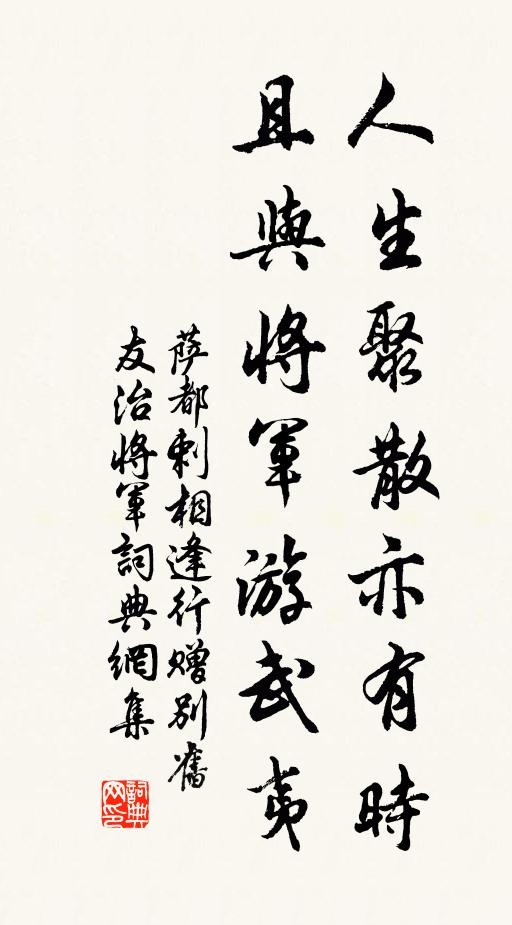 人生聚散亦有時
且與將軍游武夷
萨都剌相逢行赠别舊
友治將軍詞典網集
詞典网印